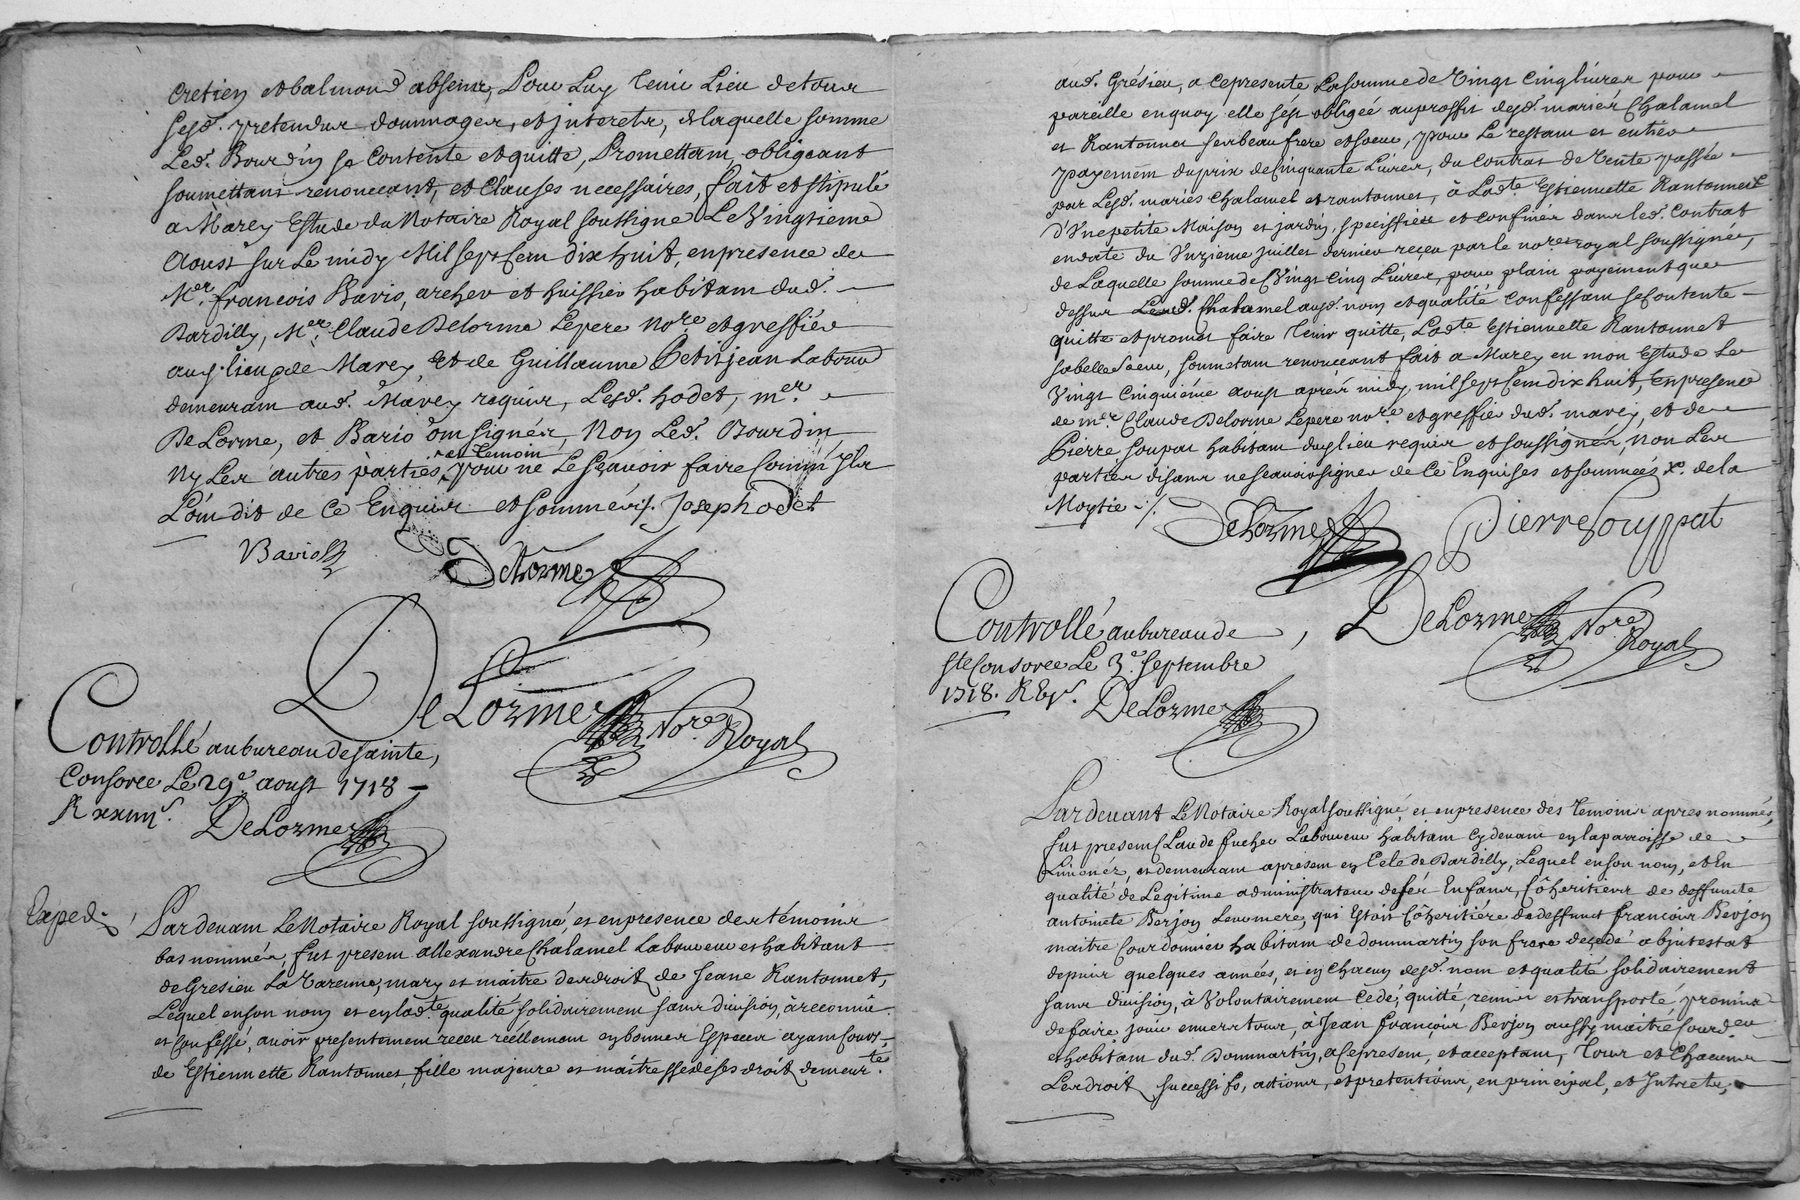 Cretien et balmond absens, Pour Luy tenir Lieu de tous
sesd. pretendus dommages, et interets, de laquelle somme
Led. Bourdin se Contente et quitte, Promettam, obligeant
soumettant renonceant, et Clauses necessaires, fait et stipulé
a Marcy Estude du Notaire Royal soussigné Le Vingtieme
Aoust sur Le midy Mil sept Cem dix huit, en presence de
Mer. françois Bavio, archer et huissier habitam dud.
Dardilly, Mer. Claude Delorme Le pere Nore et greffier
aud. lieu de Marcy, Et de Guillaume Petitjean Laboureur
demeuram aud. Marcy requis, Lesd. hodet, mer.
De Lorme, et Bavio om signés, Non Led. Bourdin,
Ny Les autres parties, ny temoin pour ne Le sçavoir faire comm' Ils
L'om dit de Ce Enquis et sommés ./. Joseph odet
Bavio
Delorme
De Lorme Nore Royal
Controllé au bureau de sainte,
Consorce Le 29e. aoust 1718
R xxiiijs. DeLorme
Exped.
Pardevam Le Notaire Royal soussigné, et en presence des témoins
bas nommés, fut presem allexandre Chalamel Laboureur et habitant
de Gresieu La Varenne, mary et maitre des droit de Jeane Rantonnet,
Lequel en son nom et en lad.te qualité solidairement sans division, à reconnu
et confessé, avoir presentement receu réellemem en bonnes Especes ayam Cours
de Estiennette Rantonnet, fille majeure et maitresse de ses droit demeur.te
aud. Grésieu, a Ce presente La somme de Vingt Cinq livres pour
pareille en quoy elle s'est obligeé au proffit desd. mariés Chalamel
et Rantonnet ses beau frere et soeur, pour Le restam et entier
payemem du prix de Cinquante Livres, du Contrat de Vente passée
par Lesd. mariés Chalamel et rantonnet, à Lad.te Estiennette Rantonnet
d'Une petite Maison et jardin, speciffiés et confinés dans led. Contrat
en date du Unzieme juillet dernier reçeu par le nore. royal soussigné,
de Laquelle somme de Vingt Cinq Livres, pour plain payement que
dessus Led. Chalamel aud. nom et qualité Confessam se Contente
quitte et promet faire tenir quitte, Lad.te Estiennette Rantonnet
sa belle soeur, soumetam renonceant fait a Marcy en mon Estude Le
Vingt Cinquiéme aoust aprés midy, mil sept Cem dix huit, En presence
de mer. Claude Delorme Le pere nore et greffier dud. marcy, et de
Pierre Soupat habitam dud. lieu requis et soussignés, Non Les
parties disans ne scavoir signer de Ce Enquises et sommeés x. de la
Moytie ./.
DeLorme
Pierre Souppat
Controllé au bureau de,
ste Consorce Le 3e. septembre
1718. R vjs. DeLorme
De Lorme Nore Royal
Pardevant Le Notaire Royal soussigné, et en presence des temoins apres nommés,
fut presem Claude fucher Laboureur habitam Cydevam en la parroisse de
Limonés, et demeuram a presem en Celle de Dardilly, Lequel en son nom, et En
qualité de Legitime administrateur de ses Enfans, Côheritiers de deffuncte
antoinete Berjon Leur mere, qui Estoit Côheritiére de deffunct françois Berjon
maitre Courdonnier habitam de dommartin son frere deçedé abjntestat
depuis quelques années, et en Chacun desd. nom et qualité solidairement
sans division, à Volontairement Cedé, quitté, remis et transporté, promis
de faire jouir envers tous, à Jean françois Berjon aussy maitre Courd.eur
et habitam dud. Dommartin, a Ce presem, et acceptam, Tous et Chacuns
Les droit successifs, actions, et pretentions, en principal, et Intrets,